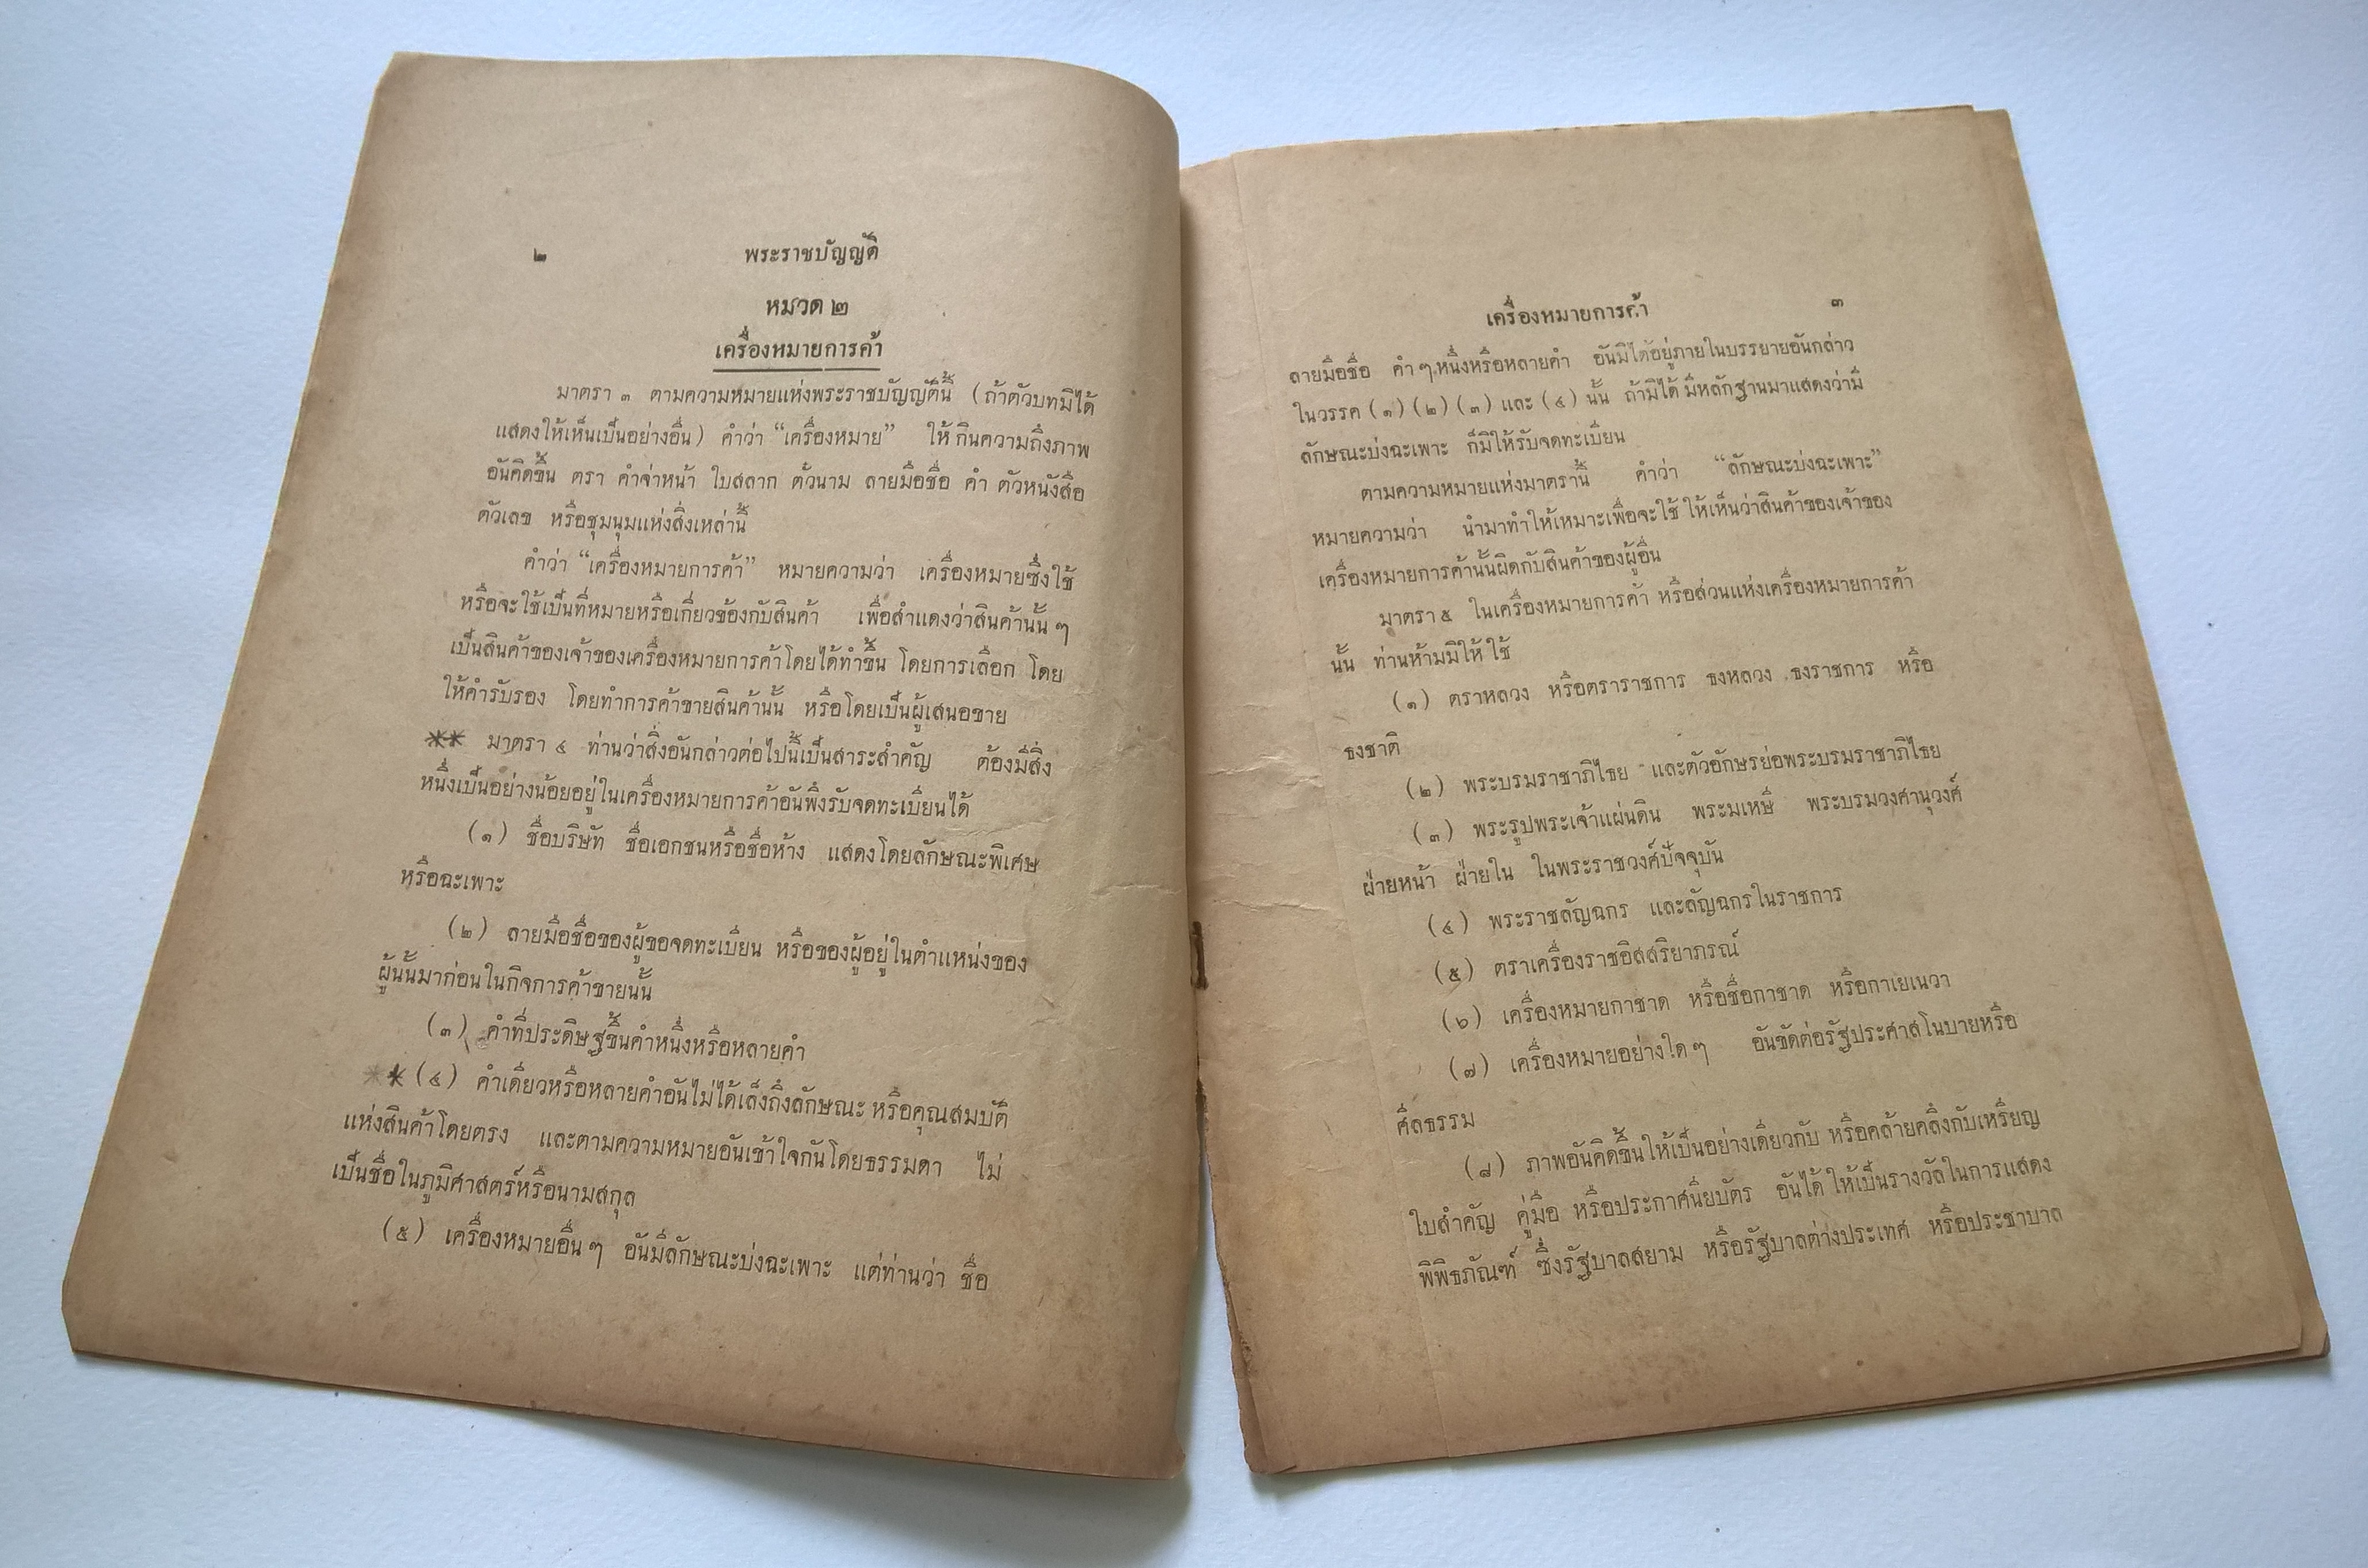 ๒ พระราชบัญญัติ
หมวด ๒
เครื่องหมายการค้า
มาตรา ๓ ตามความหมายแห่งพระราชบัญญัตินี้ (ถ้าตัวบทมิได้
แสดงให้เห็นเป็นอย่างอื่น) คำว่า “เครื่องหมาย” ให้กินความถึงภาพ
อันคิดขึ้น ตรา คำจ่าหน้า ใบสลาก ตัวนาม ลายมือชื่อ คำ ตัวหนังสือ
ตัวเลข หรือชุมนุมแห่งสิ่งเหล่านี้
คำว่า “เครื่องหมายการค้า” หมายความว่า เครื่องหมายซึ่งใช้
หรือจะใช้เป็นที่หมายหรือเกี่ยวข้องกับสินค้า เพื่อสำแดงว่าสินค้านั้น ๆ
เป็นสินค้าของเจ้าของเครื่องหมายการค้าโดยได้ทำขึ้น โดยการเลือก โดย
ให้คำรับรอง โดยทำการค้าขายสินค้านั้น หรือโดยเป็นผู้เสนอขาย
** มาตรา ๔ ท่านว่าสิ่งอันกล่าวต่อไปนี้เป็นสาระสำคัญ ต้องมีสิ่ง
หนึ่งเป็นอย่างน้อยอยู่ในเครื่องหมายการค้าอันพึงรับจดทะเบียนได้
(๑) ชื่อบริษัท ชื่อเอกชนหรือชื่อห้าง แสดงโดยลักษณะพิเศษ
หรือฉะเพาะ
(๒) ลายมือชื่อของผู้ขอจดทะเบียน หรือของผู้อยู่ในตำแหน่งของ
ผู้นั้นมาก่อนในกิจการค้าขายนั้น
(๓) คำที่ประดิษฐขึ้นคำหนึ่งหรือหลายคำ
** (๔) คำเดียวหรือหลายคำอันไม่ได้เล็งถึงลักษณะ หรือคุณสมบัติ
แห่งสินค้าโดยตรง และตามความหมายอันเข้าใจกันโดยธรรมดา ไม่
เป็นชื่อในภูมิศาสตร์หรือนามสกุล
(๕) เครื่องหมายอื่น ๆ อันมีลักษณะบ่งฉะเพาะ แต่ท่านว่า ชื่อ
เครื่องหมายการค้า ๓
ลายมือชื่อ คำ ๆ หนึ่งหรือหลายคำ อันมิได้อยู่ภายในบรรยายอันกล่าว
ในวรรค (๑) (๒) (๓) และ (๔) นั้น ถ้ามิได้มีหลักฐานมาแสดงว่ามี
ลักษณะบ่งฉะเพาะ ก็มิให้รับจดทะเบียน
ตามความหมายแห่งมาตรานี้ คำว่า “ลักษณะบ่งฉะเพาะ”
หมายความว่า นำมาทำให้เหมาะเพื่อจะใช้ให้เห็นว่าสินค้าของเจ้าของ
เครื่องหมายการค้านั้นผิดกับสินค้าของผู้อื่น
มาตรา ๕ ในเครื่องหมายการค้า หรือส่วนแห่งเครื่องหมายการค้า
นั้น ท่านห้ามมิให้ใช้
(๑) ตราหลวง หรือตราราชการ ธงหลวง ธงราชการ หรือ
ธงชาติ
(๒) พระบรมราชาภิไธย และตัวอักษรย่อพระบรมราชาภิไธย
(๓) พระรูปพระเจ้าแผ่นดิน พระมเหษี พระบรมวงศานุวงศ์
ฝ่ายหน้า ฝ่ายใน ในพระราชวงศ์ปัจจุบัน
(๔) พระราชลัญฉกร และลัญฉกรในราชการ
(๕) ตราเครื่องราชอิสสริยาภรณ์
(๖) เครื่องหมายกาชาด หรือชื่อกาชาด หรือกาเยเนวา
(๗) เครื่องหมายอย่างใด ๆ อันขัดต่อรัฐประศาสโนบายหรือ
ศีลธรรม
(๘) ภาพอันคิดขึ้นให้เป็นอย่างเดียวกับ หรือคล้ายคลึงกับเหรียญ
ใบสำคัญ คู่มือ หรือประกาศนียบัตร อันได้ให้เป็นรางวัลในการแสดง
พิพิธภัณฑ์ ซึ่งรัฐบาลสยาม หรือรัฐบาลต่างประเทศ หรือประชาบาล